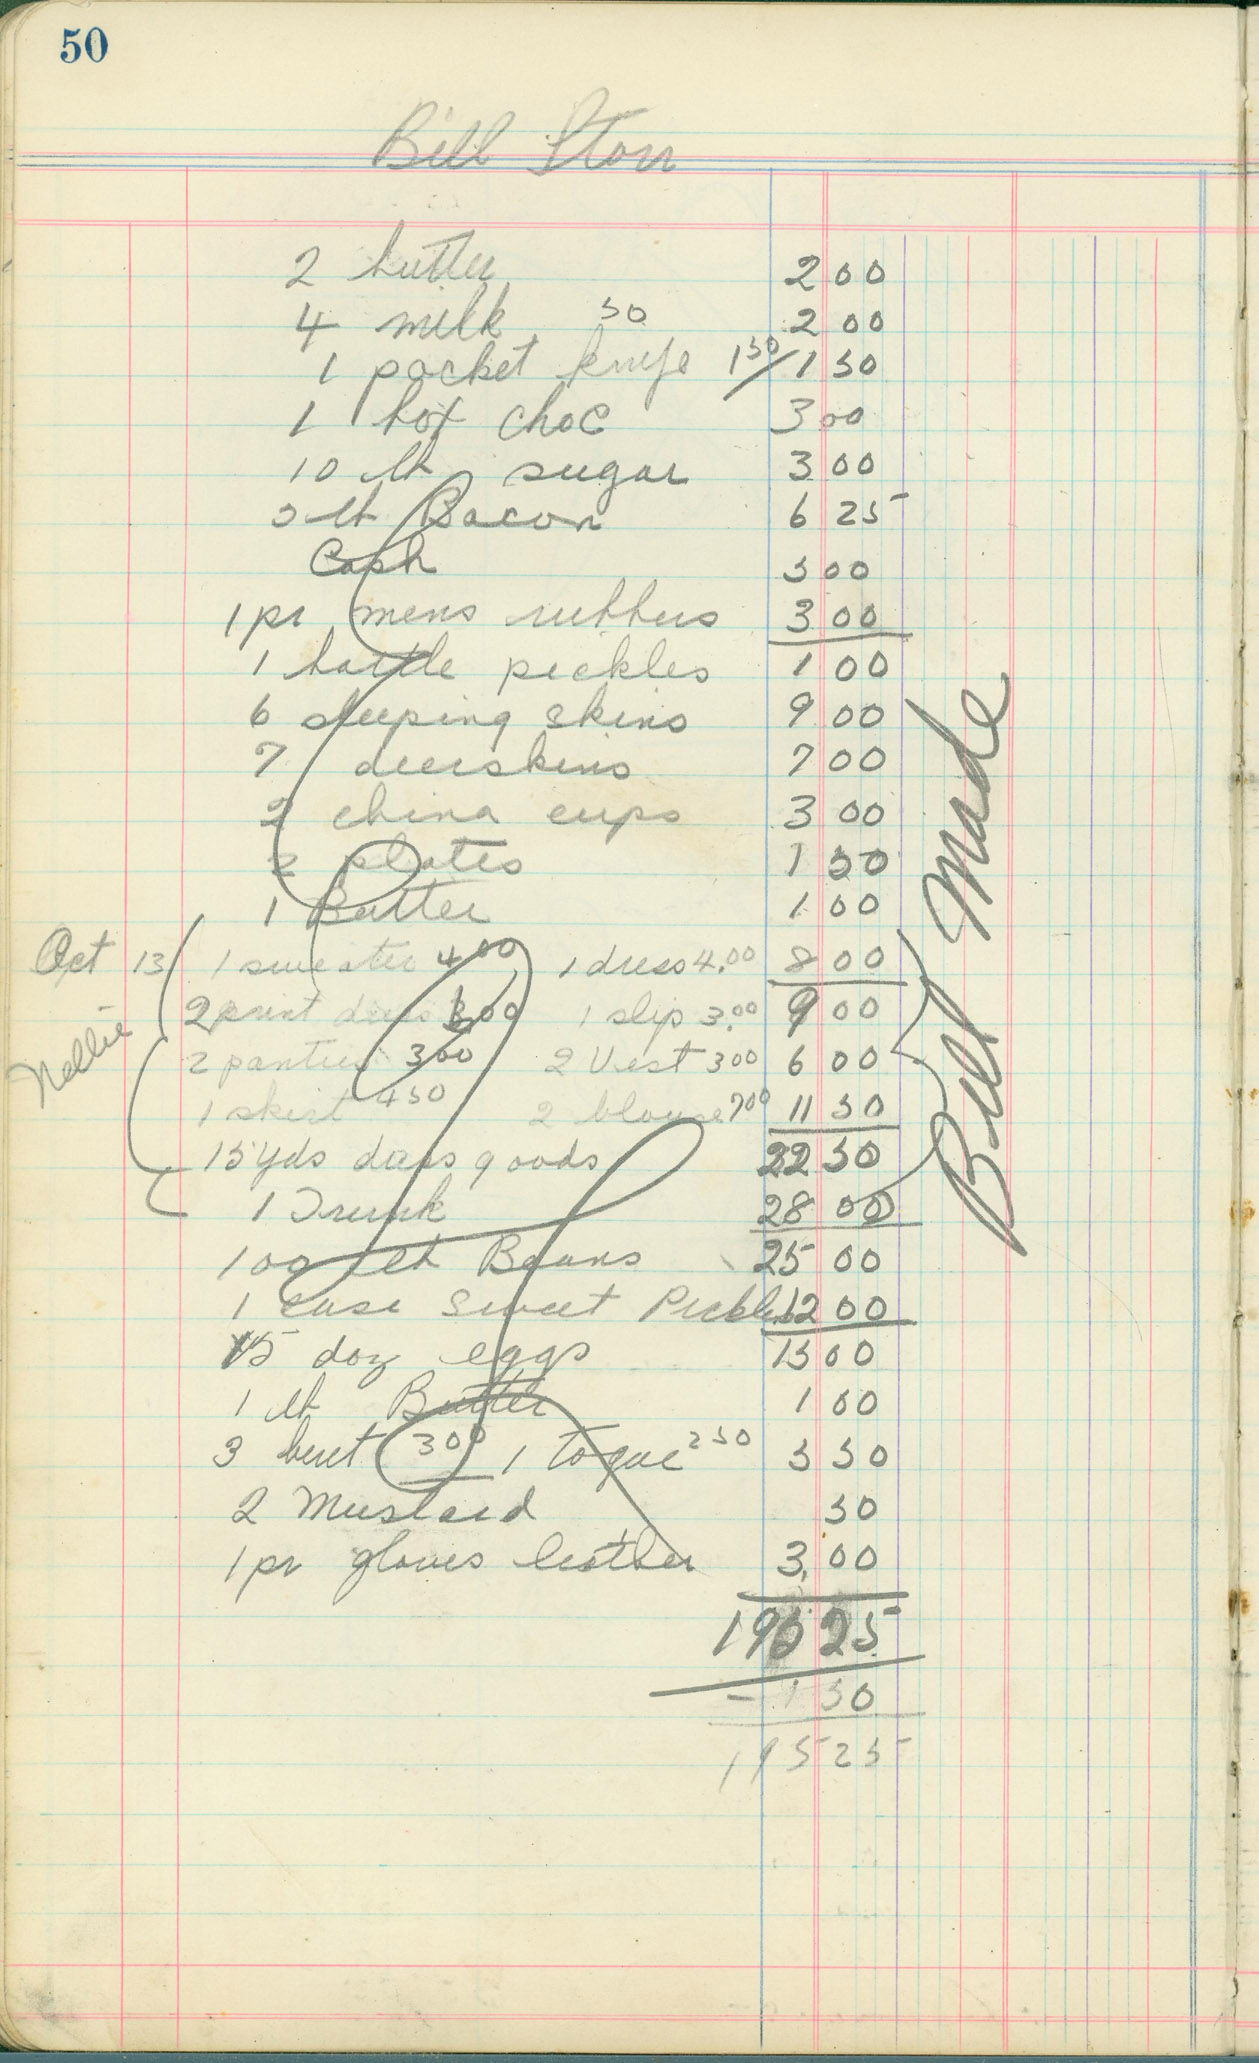 50
Bill Storr
2 butter 2 00
4 milk 50 2 00
1 pocket knife 1 50/ 1 50
1 box choc 3 00
10 lb sugar 3 00
5 lb Bacon 6 25
Cash 5 00
1 pr mens rubbers 3 00
1 bottle pickles 1 00
6 sleeping skins 9 00
7 deerskins 7 00
2 china cups 3 00
2 plates 1 50
1 Butter 1 00
Oct 13 1 sweater 4 00 1 dress 4.00 8 00
2 print dress 6 00 1 slip 3.00 9 00
Nellie 2 panties 3 00 2 Vest 3 00 6 00
1 skirt 4 50 2 blouse 7 00 11 50
15 yds dress goods 22 50
1 Trunk 28 00
100 lb Beans 25 00
1 case Sweet Pickles 12 00
15 doz eggs 15 00
1 lb Butter 1 00
3 beret 3 00 1 toque 2 50 5 50
2 Mustard 50
1 pr gloves leather 3.00
196 25
- 1 50
195 25
Bill Made